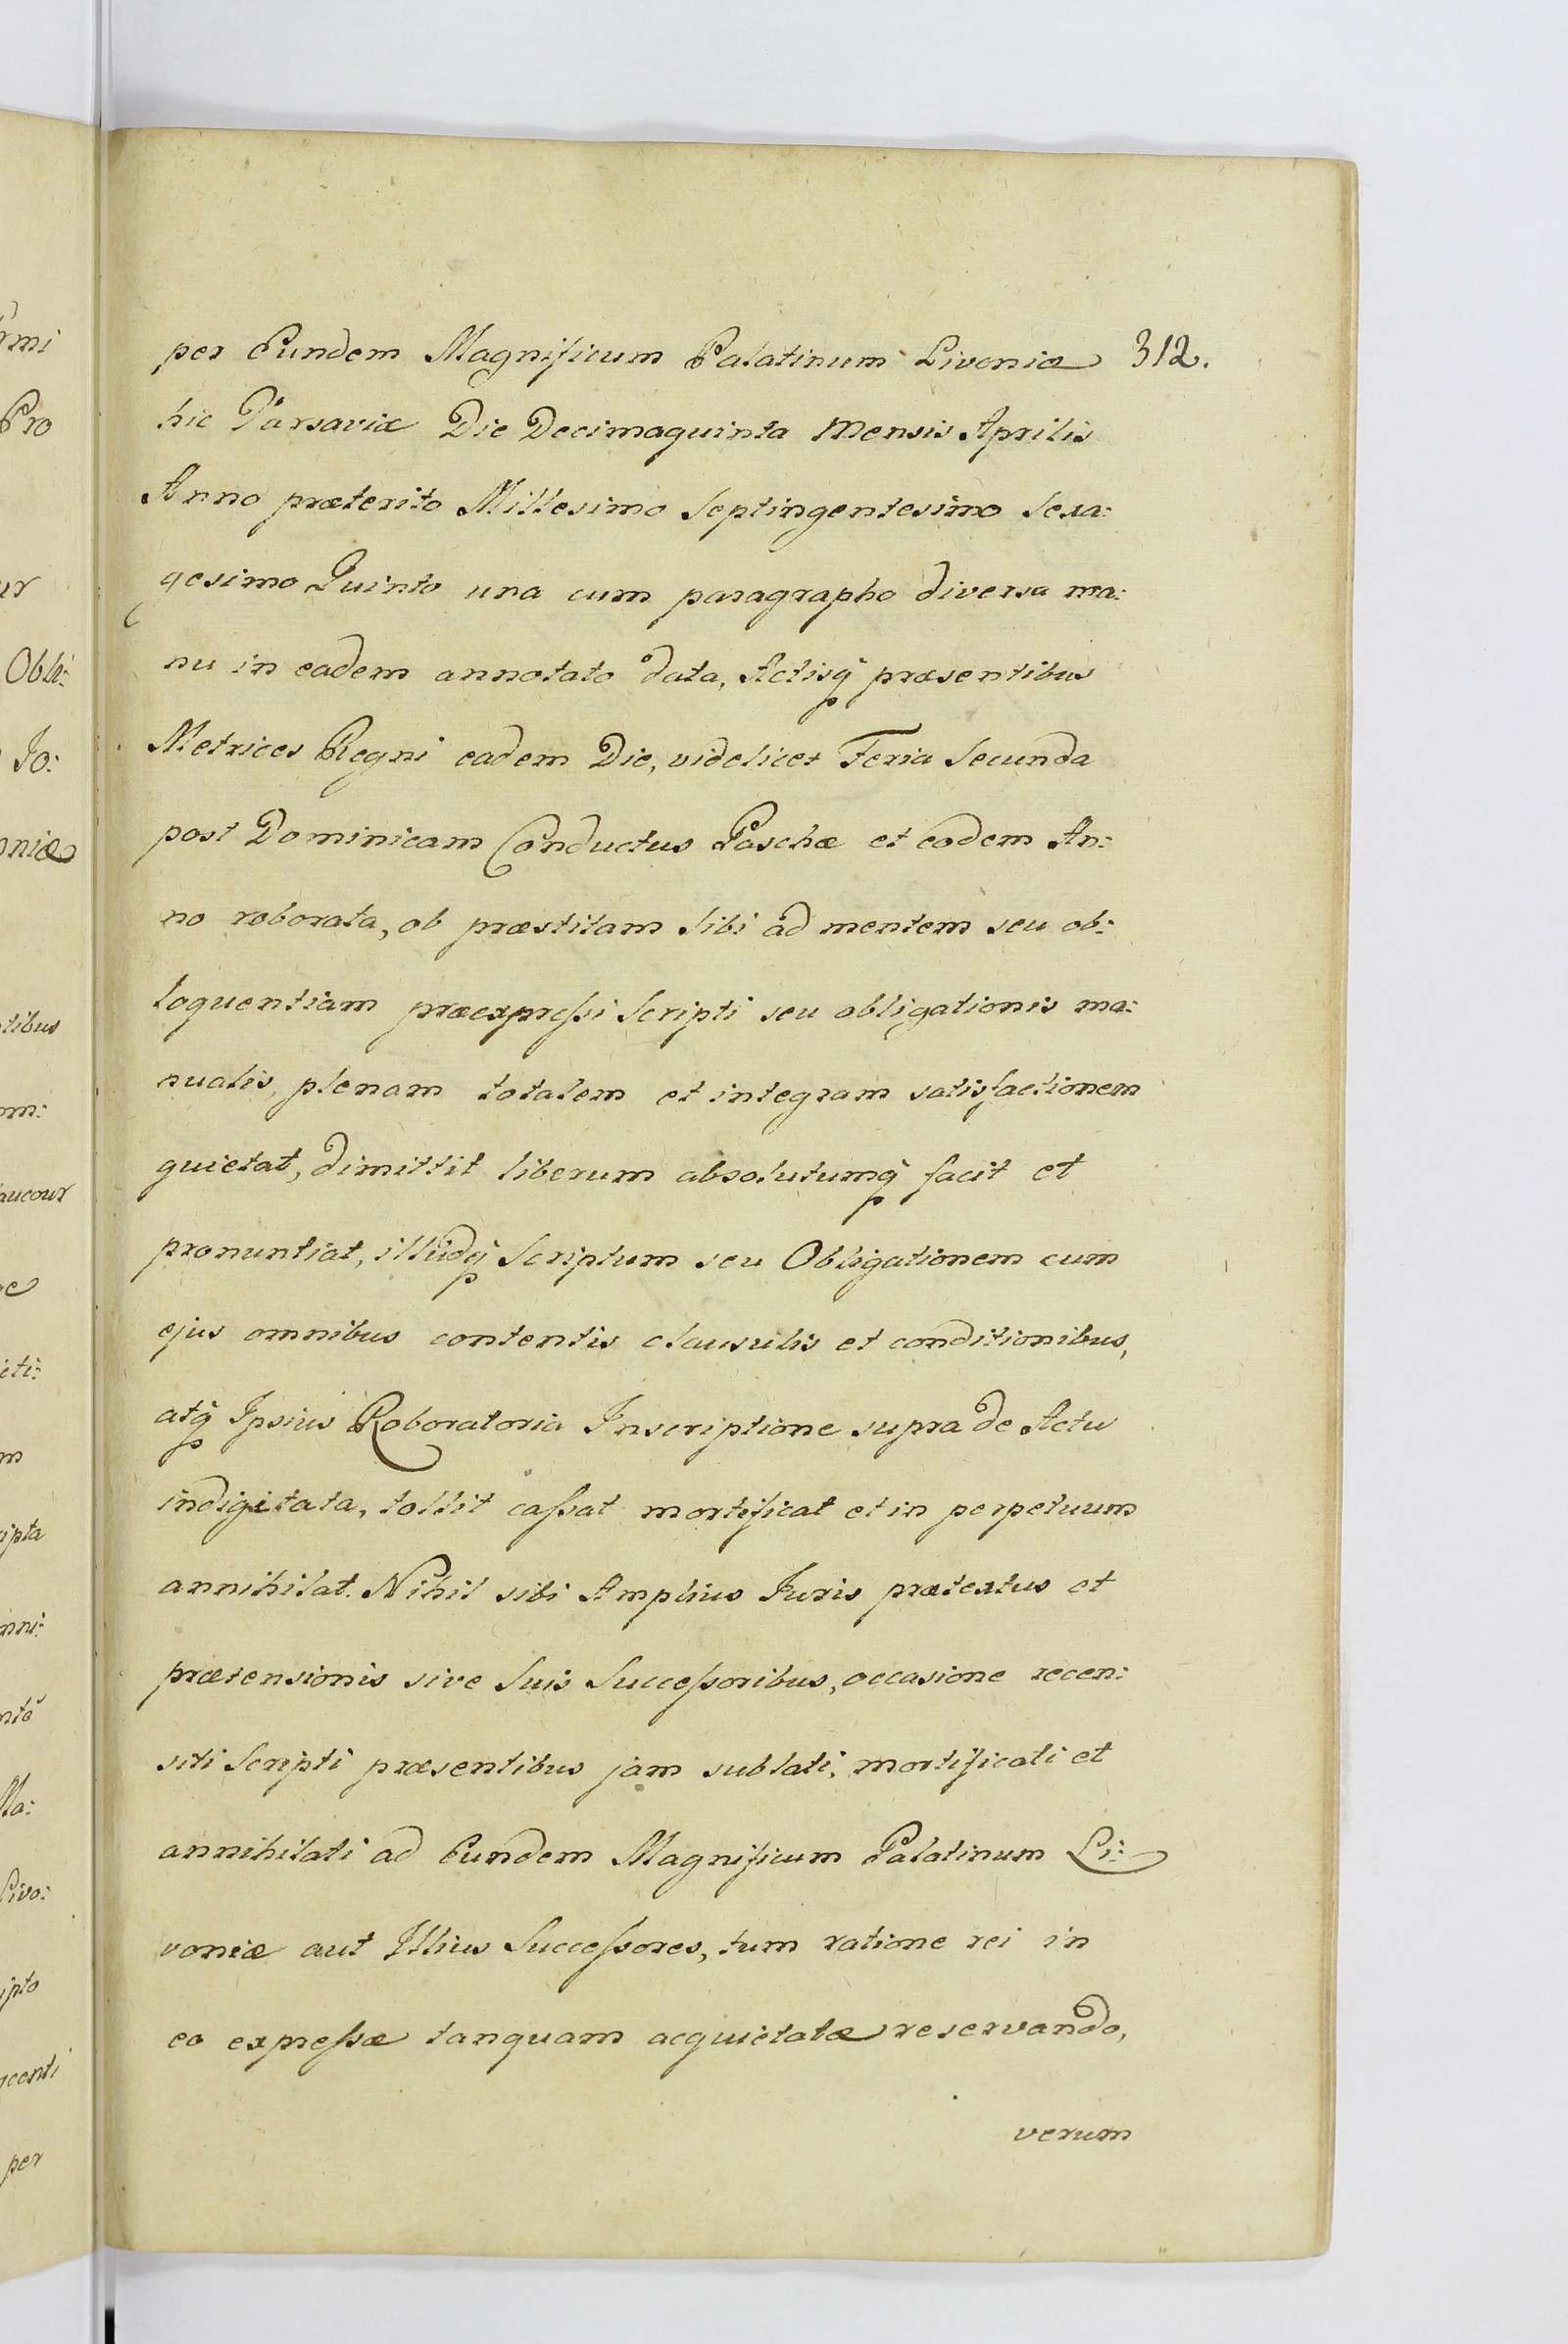 per Eundem Magnificum Palatinum Livoniæ 312.
hic Varsaviæ Die Decimaquinta Mensis Aprilis
Anno præterito Millesimo Septingentesimo Sexa:
gesimo Quinto una cum paragrapho diversa ma:
nu in eadem annotato data, Actisq præsentibus
Metrices Regni eadem Die, videlicet Feria Secunda
post Dominicam Conductus Paschæ et eodem An:
no roborata, ob præstitam Sibi ad mentem seu ob:
loquentiam præexpreſsi Scripti seu obligationis ma:
nualis, plenam totalem et integram satisfactionem
quietat, dimittit liberum absolutumq facit et
pronuntiat, illudq Scriptum seu Obligationem cum
ejus omnibus contentis clausulis et conditionibus,
atq Ipsius Roboratoria Inscriptione supra de Actu
indigitata, tollit caſsat mortificat et in perpetuum
annihilat. Nihil sibi Amplius Juris prætextus et
prætensionis sive Suis Succeſsoribus, occasione recen:
siti Scripti præsentibus jam sublati, mortificati et
annihilati ad Eundem Magnificum Palatinum Li:
voniæ aut Illius Succeſsores, tum ratione rei in
eo expreſsæ tanquam acquietatæ reservando,
verum